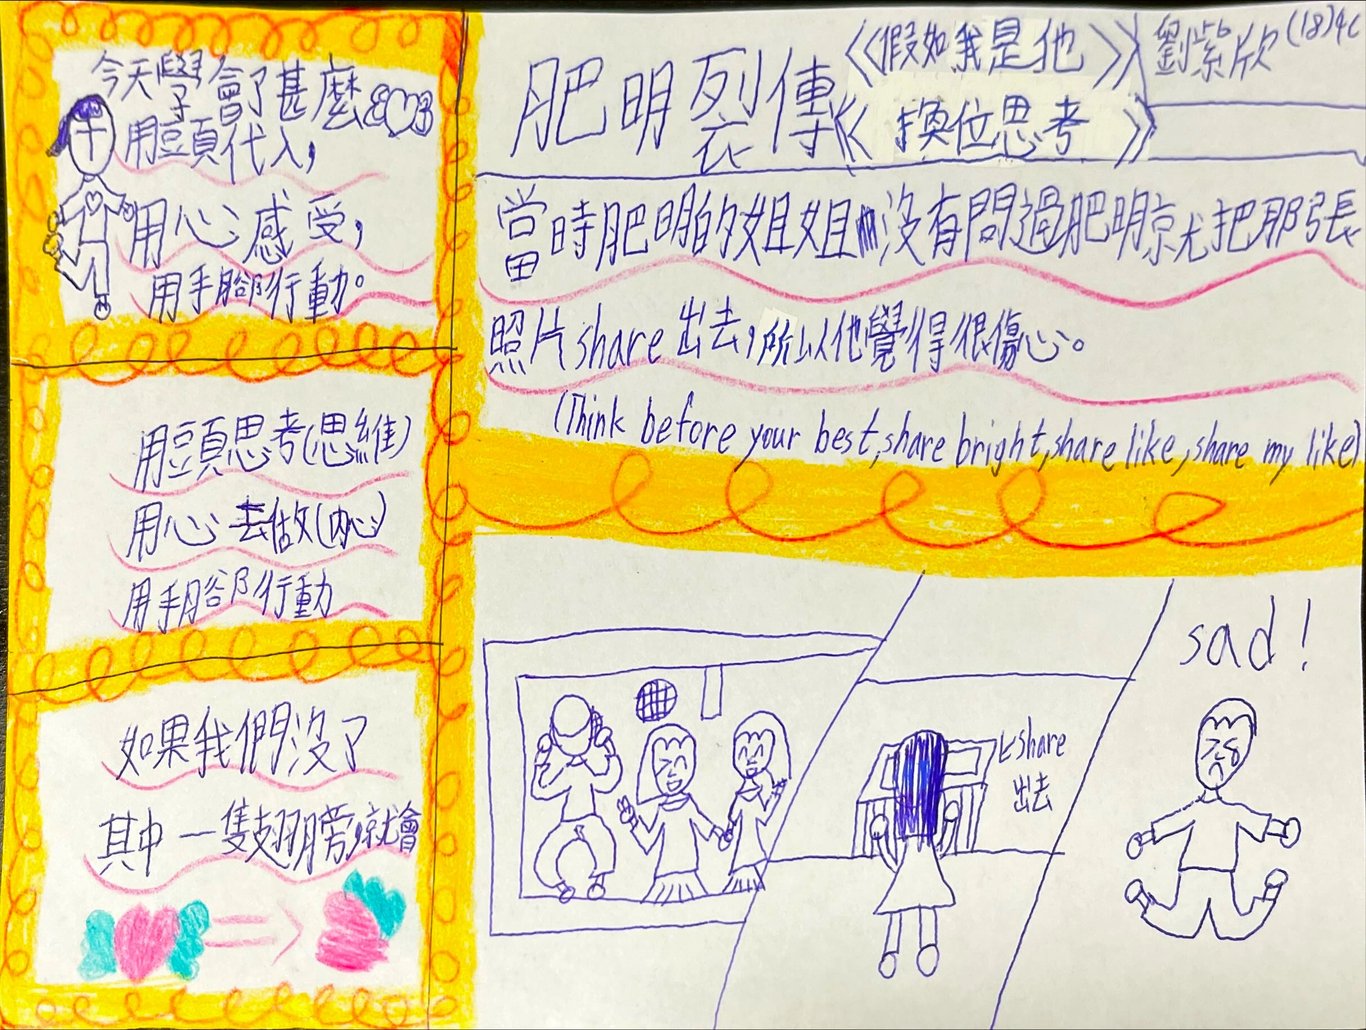 今天學會了甚麼
用頭代入，
用心感受，
用手腳行動。
用頭思考(思維)
用心去做(內心)
用手腳行動
如果我們沒了
其中一隻翅膀，就會
肥明裂傳
《假如我是他》
《換位思考》
劉紫欣(18)4C
當時肥明的姐姐沒有問過肥明就把那張
照片share出去，所以他覺得很傷心。
(Think before your best,share bright,share like,share my like)
share
出去
sad!